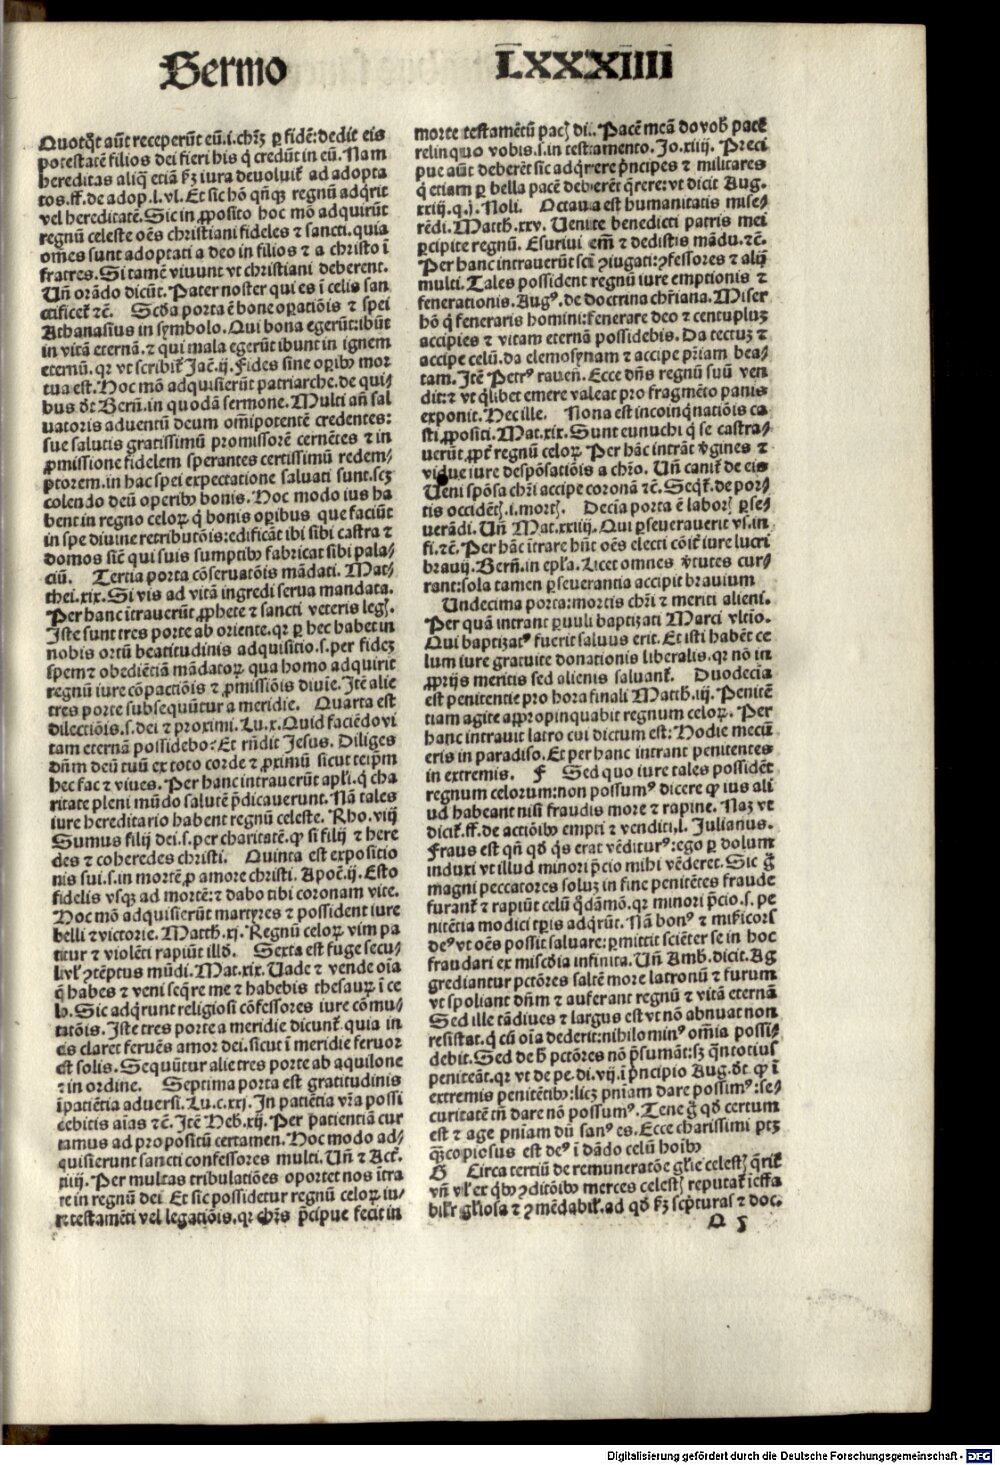 Sermo LXXXIIII
Quotqͥt aūt receperūt eū.i.chrꝫ ꝑ fidē:dedit eis
potestatē filios dei fieri his q̇ credūt in eū. Nam
hereditas aliq̄ etiā ẜꝫ iura devoluiẗ ad adopta
tos.ff.de adop.l.vl. Et sic hō qn̄qꝫ regnū adq̇rit
vel hereditatē. Sic in ꝓposito hoc mō adquirūt
regnū celeste oēs christiani fideles ⁊ sancti. quia
omēs sunt adoptati a deo in filios ⁊ a christo ī
fratres. Si tamē vivunt vt christiani deberent.
Un̄ orādo dicūt. Pater noster qui es ī celis san
ctificet̄ ⁊c̄. Scḋa porta ē bone opatiōis ⁊ spei
Athanasius in symbolo. Qui bona egerūt:ibūt
in vitā eternā.⁊ qui mala egerūt ibunt in ignem
eternū.qꝛ vt scribit̄ Jac̄.ij. Fides sine oꝑibꝰ mor
tua est. Hoc mō adquisierūt patriarche. de qui⸗
bus dc̄t Bern̄.in quodā sermone. Multi añ sal
vatoris adventū deum om̄ipotentē credentes:
sue salutis gratissimū promissorē cernētes ⁊ in
ꝓmissione fidelem sperantes certissimū redem⸗
ptorem.in hac spei expectatione salvati sunt.scꝫ
colendo deū operibꝰ bonis. Hoc modo ius ha
bent in regno celoꝝ q̇ bonis oꝑibus que faciūt
in spe divine retributōis:edificāt ibi sibi castra ⁊
domos sic̄ qui suis sumptibꝰ fabricat sibi pala⸗
ciū. Tertia porta cōservatōis mādati. Mat⸗
thei.xix. Si vis ad vitā ingredi serva mandata.
Per hanc ītraverūt ꝓphete ⁊ sancti veteris legꝭ.
Iste sunt tres porte ab oriente.qꝛ ꝑ hec habet in
nobis ortū beatitudinis adquisitio.s.per fideꝫ
spem⁊ obediētiā mādatoꝝ qua homo adquirit
regnū iure cōpactiōis ⁊ ꝓmissiōis divīe. Itē alie
tres porte subsequūtur a meridie. Quarta est
dilectiōis.s.dei ⁊ proximi. Lu.x. Quid faciēdo vi
tam eternā possidebo? Et rn̄dit Jesus. Diliges
dn̄m deū tuū ex toto corde ⁊ ꝓximū sicut teipm̄
hec fac ⁊ vives. Per hanc intraverūt apl̄i.q̇ cha
ritate pleni mūdo salutē p̄dicaverunt. Nā tales
iure hereditario habent regnū celeste. Rho.viij
Sumus filij dei.s.per charitatē.ꝙ si filij ⁊ here
des ⁊ coheredes christi. Quinta est expositio
nis sui.s.in mortē ꝓ amore christi. Apoc̄.ij. Esto
fidelis vsqꝫ ad mortē:⁊ dabo tibi coronam vite.
Hoc mō adquisierūt martyres ⁊ possident iure
belli ⁊ victorie. Matth.xj. Regnū celoꝝ vim pa
titur ⁊ violēti rapiūt illḋ. Sexta est fuge secu⸗
li.vl̄ ꝯtēptus mūdi. Mat.xix. Uade ⁊ vende oīa
q̄ habes ⁊ veni seq̄re me ⁊ habebis thesauꝝ ī ce
lo. Sic adq̇runt religiosi cōfessores iure cōmu⸗
tatōis. Iste tres porte a meridie dicunt̄ quia in
eis claret fervēs amor dei.sicut ī meridie fervor
est solis. Sequūtur alie tres porte ab aquilone
⁊ in ordine. Septima porta est gratitudinis
īpatiētia adversi. Lu.c.xxj. In patiētia vr̄a possi
debitis aīas ⁊c̄. Itē Heb.xij. Per patientiā cur
ramus ad propositū certamen. Hoc modo ad⸗
quisierunt sancti confessores multi. Un̄ ⁊ Act̄.
xiiij. Per multas tribulatiōes oportet nos ītra
re in regnū dei Et sic possidetur regnū celoꝝ iu⸗
re testamēti vel legatiōis.qꝛ chr̄s p̄cipue fecit in
morte testamētū pacꝭ di.. Pacē meā do voḃ pacē
relinquo vobis.s.in testamento. Jo.xiiij. Preci
pue aūt deberēt sic adq̇rere p̄ncipes ⁊ militares
q̇ etiam ꝑ bella pacē deberēt q̄rere:vt dicit Aug.
xxiij.q.j. Noli. Octava est humanitatis mise⸗
rēdi. Matth.xxv. Uenite benedicti patris mei
ꝑcipite regnū. Esurivi em̄ ⁊ dedistis mādu.⁊c̄.
Per hanc intraverūt scī ꝯiugati:ꝯfessores ⁊ alij
multi. Tales possident regnū iure emptionis ⁊
fenerationis. Augꝰ.de doctrina chr̄iana. Miser
hō q̇ feneraris homini:fenerare deo ⁊ centupluꝫ
accipies ⁊ vitam eternā possidebis. Da tectuꝫ ⁊
accipe celū.da elemosynam ⁊ accipe pr̄iam bea⸗
tam. Itē Petrꝰ raven̄. Ecce dn̄s regnū suū ven
dit:⁊ vt q̇libet emere valeat pro fragmēto panis
exponit. Hec ille. Nona est incoinq̇natiōis ca
sti ꝓpositi. Mat.xix. Sunt eunuchi q̇ se castra⸗
verūt ꝓpt̄ regnū celoꝝ. Per hāc intrāt v̇gines ⁊
vidue iure despōsatiōis a chr̄o. Un̄ canit̄ de eis
Ueni spōsa chr̄i accipe coronā ⁊c̄. Seq̇t̄.de por⸗
tis occidētꝭ.i.mortꝭ. Decia porta ē laborꝭ ꝑse⸗
verādi. Un̄ Mat.xxiiij. Qui ꝑseveraverit vs.in
fi.⁊c̄. Per hāc ītrare hn̄t oēs electi cōit̄ iure lucri
bravij. Bern̄.in epl̄a. Licet omnes v̇tutes cur⸗
rant:sola tamen ꝑseverantia accipit bravium
Undecima porta:mortis chr̄i ⁊ meriti alieni.
Per quā intrant ꝑvuli baptizati Marci vltīo.
Qui baptizatꝰ fuerit salvus erit. Et isti habēt ce
lum iure gratuite donationis liberalis.qꝛ nō in
ꝓprijs meritis sed alienis salvant̄. Duodecīa
est penitentie pro hora finali Matth.iij. Penitē
tiam agite appropinquabit regnum celoꝝ. Per
hanc intravit latro cui dictum est: Hodie mecū
eris in paradiso. Et per hanc intrant penitentes
in extremis. F Sed quo iure tales possidēt
regnum celorum:non possumꝰ dicere ꝙ ius ali
ud habeant nisi fraudis more ⁊ rapine. Naꝫ vt
dicit̄.ff.de actiōibꝰ empti ⁊ venditi,l. Julianus.
Fraus est qn̄ qḋ q̇s erat vēditurꝰ:ego ꝑ dolum
induxi vt illud minori p̄cio mihi vēderet. Sic g̈
magni peccatores soluꝫ in fine penitētes fraude
furant̄ ⁊ rapiūt celū q̇dāmō.qꝛ minori p̄cio.s.pe
nitētia modici tp̄is adq̇rūt. Nā bonꝰ ⁊ mīcors
deꝰ vt oēs possit salvare:ꝑmittit sciēter se in hoc
fraudari ex miscḋia infinita. Un̄ Amb.dicit. Ag
grediantur pctōres saltē more latronū ⁊ furum
vt spoliant dn̄m ⁊ auferant regnū ⁊ vitā eternā
Sed ille tā dives ⁊ largus est vt nō abnuat non
resistat.q̇ cū oīa dederit:nihilominꝰ om̄ia possi⸗
debit. Sed de ḣ pctōres nō p̄sumāt:sꝫ q̄ntotius
peniteāt.qꝛ vt de pe.di.vij.ī p̄ncipio Aug.dc̄t ꝙ ī
extremis penitētibꝰ:licꝫ pn̄iam dare possimꝰ:se⸗
curitatē tn̄ dare nō possumꝰ. Tene g̈ qḋ certum
est ⁊ age pn̄iam dū sanꝰ es. Ecce charissimi ptꝫ
qꝫ copiosus est deꝰ ī dādo celū hoībꝰ
G Circa tertiū de remuneratōe gl̄ie celestꝭ q̄rit̄
vn̄ vl̄ ex q̇bꝰ ꝯditōibꝰ merces celestꝭ reputat̄ ieffa
bil̄r gl̄iosa ⁊ ꝯmēdabil̄.ad qḋ ẜꝫ scp̄turas ⁊ doc.
Q 5
Digitalisierung gefördert durch die Deutsche Forschungsgemeinschaft - DFG